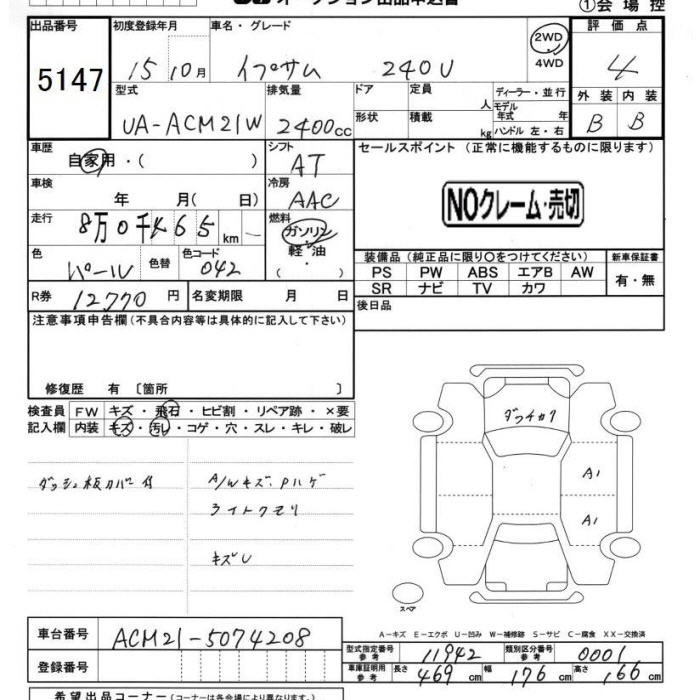 オークション出品申込書
①会場控
出品番号 初度登録年月 車名・グレード 2WD 評価点
5147 15 10月 イプサム 240U 4WD 4
型式 排気量 ドア 定員 人 ディーラー・並行 外装 内装
UA-ACM21W 2400cc 形状 積載 kg モデル年式 年 B B
ハンドル 左・右
車歴 自家用・( ) シフト AT セールスポイント (正常に機能するものに限ります)
車検 年 月( 日) 冷房 AAC NOクレーム・売切
走行 8万0千 65 km 燃料 ガソリン
軽・油
( )
色 パール 色替 色コード 042
装備品 (純正品に限り○をつけてください) 新車保証書
PS PW ABS エアB AW 有・無
SR ナビ TV カワ
R券 12770円 名変期限 月 日 後日品
注意事項申告欄(不具合内容等は具体的に記入して下さい)
修復歴 有 〔箇所 〕
検査員 FW キズ・飛石・ヒビ割・リペア跡・×要
記入欄 内装 キズ・汚レ・コゲ・穴・スレ・キレ・破レ
ダッシュ板カバー付 A/Wキズ、Pハゲ
ライトクモリ
キズU
A1
A1
スペア
A-キズ E-エクボ U-凹み W-補修跡 S-サビ C-腐食 XX-交換済
車台番号 ACM21-5074208
型式指定番号 参考 11942 類別区分番号 参考 0001
登録番号 車庫証明用 参考 長さ 469cm 幅 176cm 高さ 166cm
希望出品コーナー(コーナーは各会場により異なります)